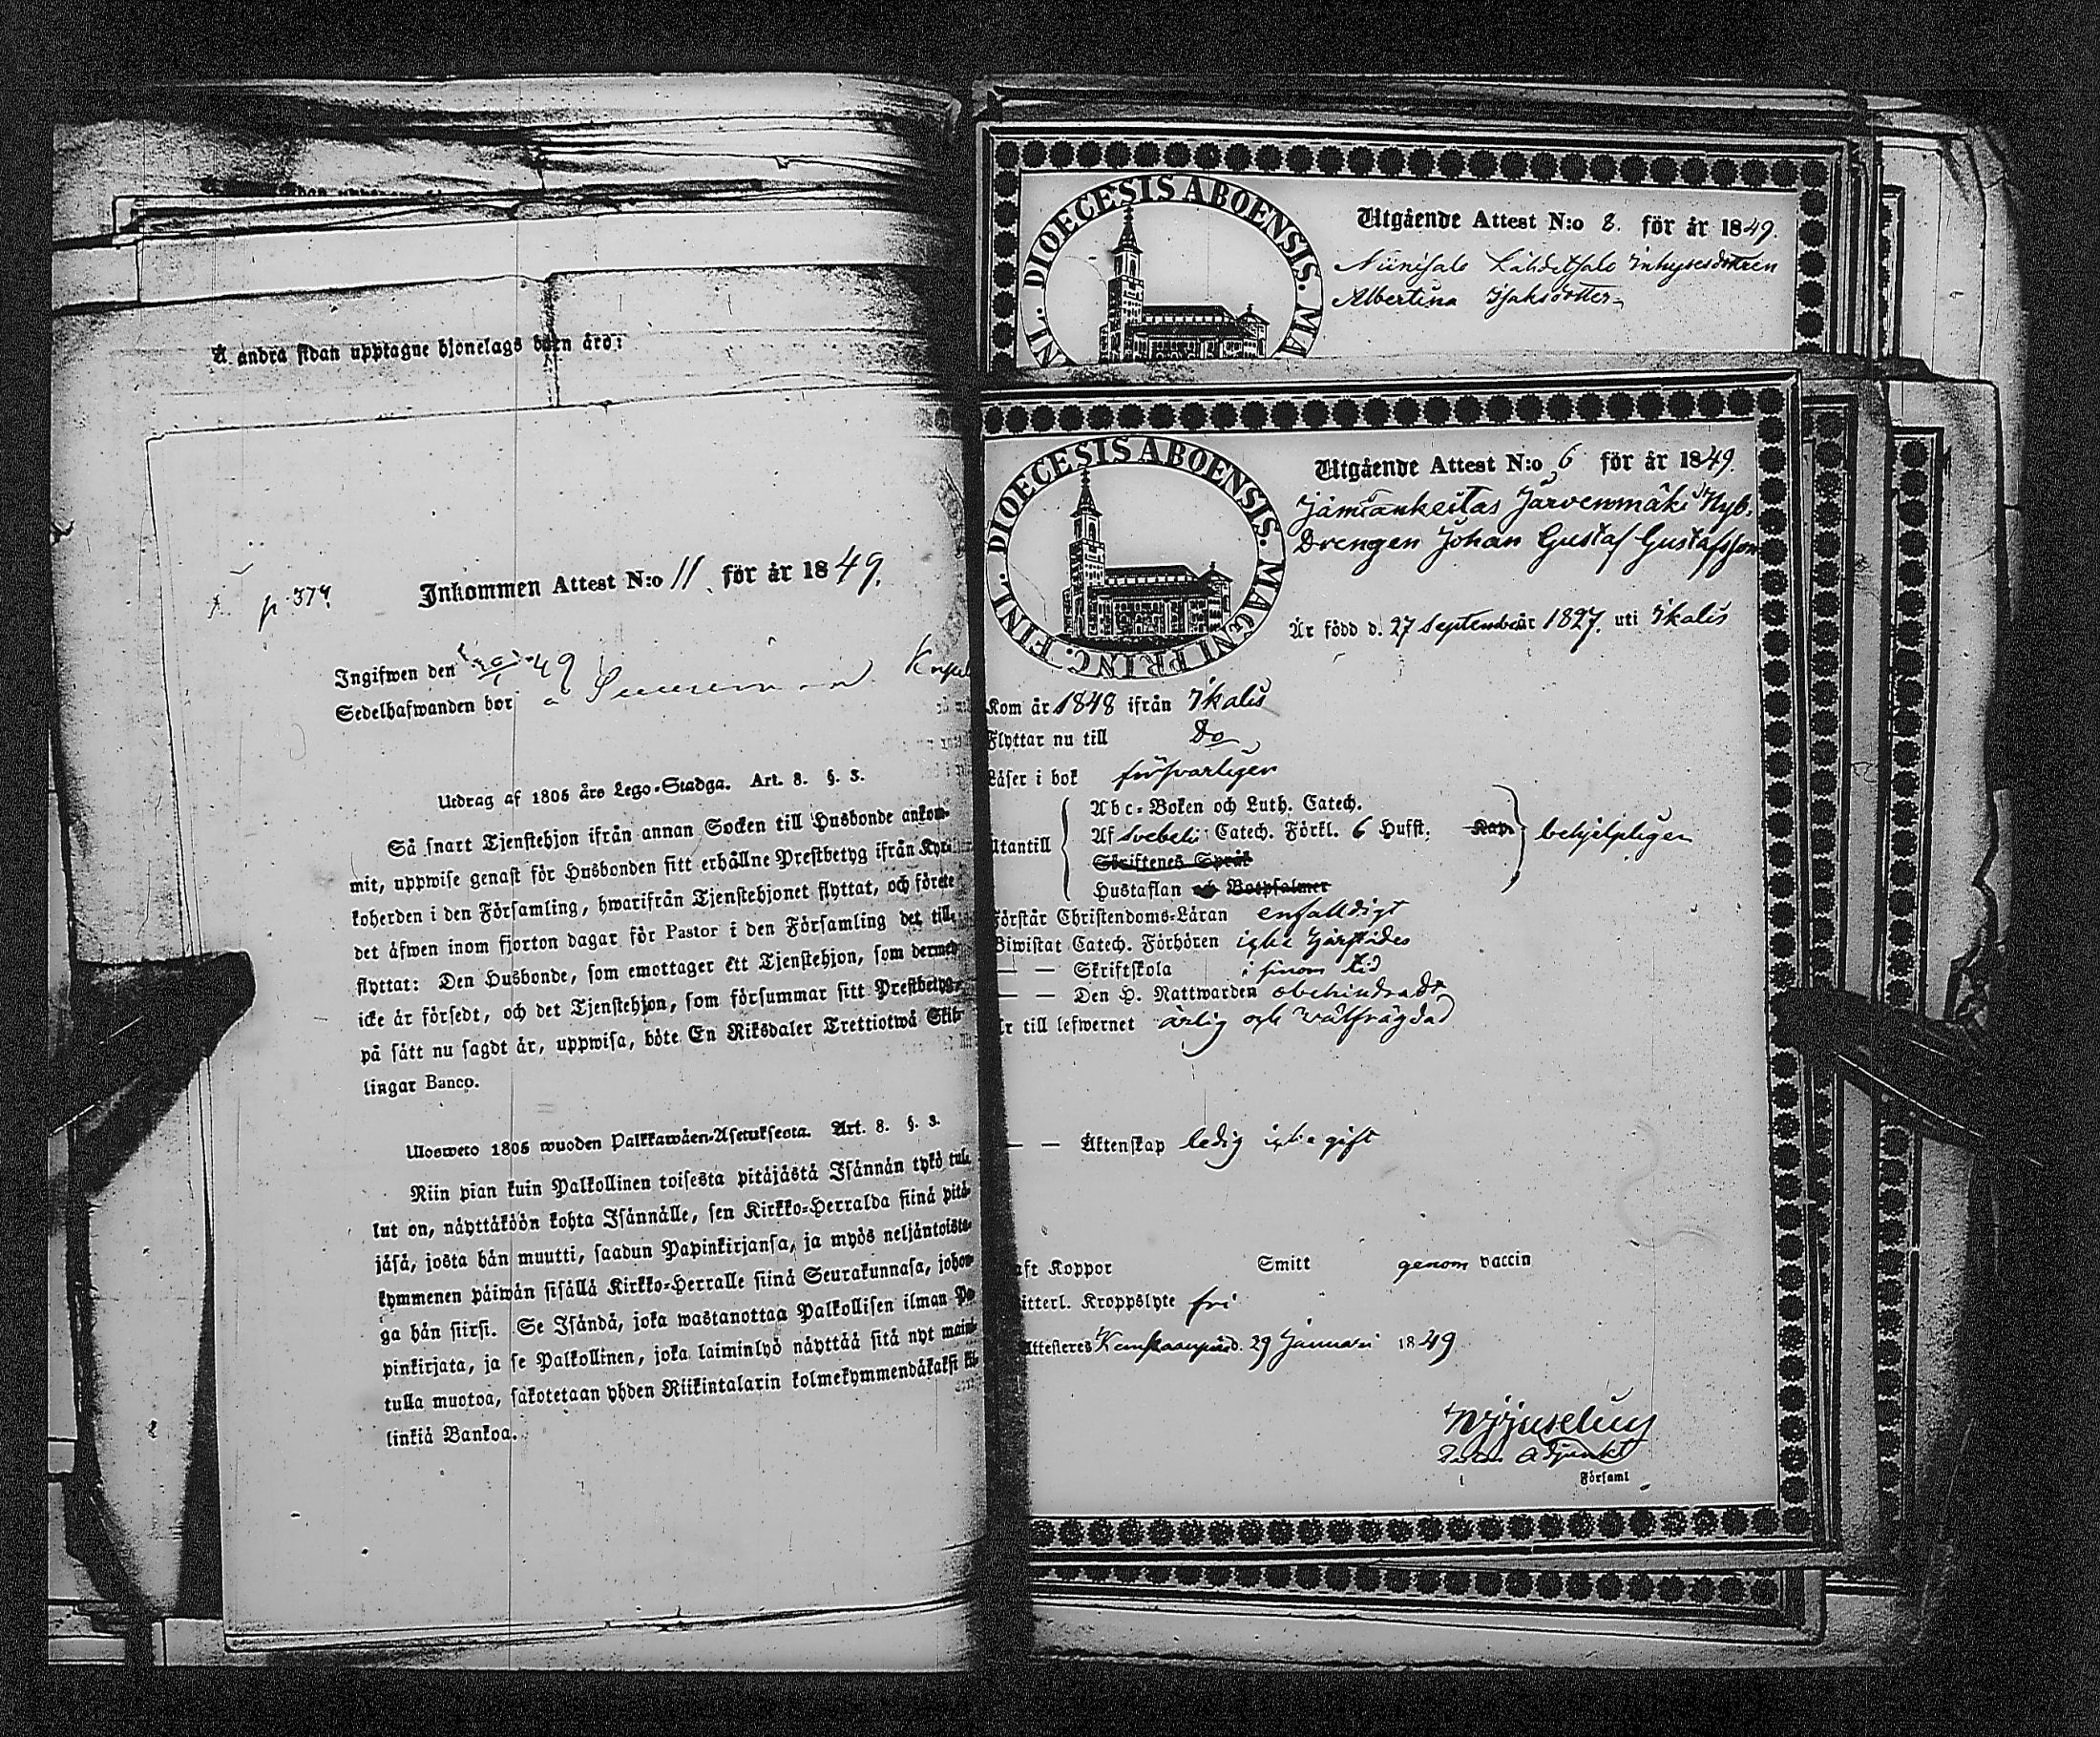 Å andra sidan upptagne hjonelags barn äro:
p. 374.
Inkommen Attest N:o 11. för år 1849.
Ingifwen den 49
Sedelhafwanden bor
Utdrag af 1805 års Lego-Stadga. Art. 8. §. 3.
Så snart Tjenstehjon ifrån annan Socken till Husbonde ankom-
mit, uppwise genast för Husbonden sitt erhållne Prestbetyg ifrån Kyr-
koherden i den Församling, hwarifrån Tjenstehjonet flyttat, och förete
det äfwen inom fjorton dagar för Pastor i den Församling det till-
flyttat: Den Husbonde, som emottager ett Tjenstehjon, som dermed
icke är försedt, och det Tjenstehjon, som försummar sitt Prestbetyg,
på sätt nu sagdt är, uppwisa, böte En Riksdaler Trettiotwå Skil-
lingar Banco.
Ulosweto 1805 wuoden Palkkawäen-Asetuksesta. Art. 8. §. 3.
Niin pian kuin Palkollinen toisesta pitäjästä Isännän tykö tul-
lut on, näyttäköön kohta Isännälle, sen Kirkko-Herralda siinä pitä-
jäsä, josta hän muutti, saadun Papinkirjansa, ja myös neljäntoista-
kymmenen päiwän sisällä Kirkko-Herralle siinä Seurakunnasa, johon-
ga hän siirsi. Se Isändä, joka wastanottaa Palkollisen ilman Pa-
pinkirjata, ja se Palkollinen, joka laiminlyö näyttää sitä nyt maini-
tulla muotoa, sakotetaan yhden Riikintalarin kolmekymmendäkaksi kil-
linkiä Bankoa.
DIOECESIS ABOENSIS. MA
Utgående Attest N:o 8. för år 1849.
Niinisalo Lähdesalo Inhysesdottren
Albertina Isaksdotter
DIOECESIS ABOENSIS. MAGNI PRINC. FINL.
Utgående Attest N:o 6 för år 1849.
Jämiänkeitas Järvenmäki Nyb.
Drengen Johan Gustaf Gustafsson
Är född d. 27 September år 1827. uti Ikalis
Kom år 1848 ifrån Ikalis
Flyttar nu till Do
Läser i bok försvarligen
Utantill Abc-Boken och Luth. Catech.
Af Svebeli Catech. Förkl. 6 Hufst. Kap. behjelpligen
Skriftenes Språk
Hustaflan och Botpsalmer
Förstår Christendoms-Läran enfaldigt
Biwistat Catech. Förhören icke härstädes
— — Skriftskola i sinom tid
— — Den H. Nattwarden obehindradt
Är till lefwernet ärlig och välfrägdad
— — Äktenskap ledig icke gift
aft Koppor Smitt genom vaccin
itterl. Kroppslyte fri
Attesteras Kankaanpää d. 29 Januari 1849
Adjunkt
Församl